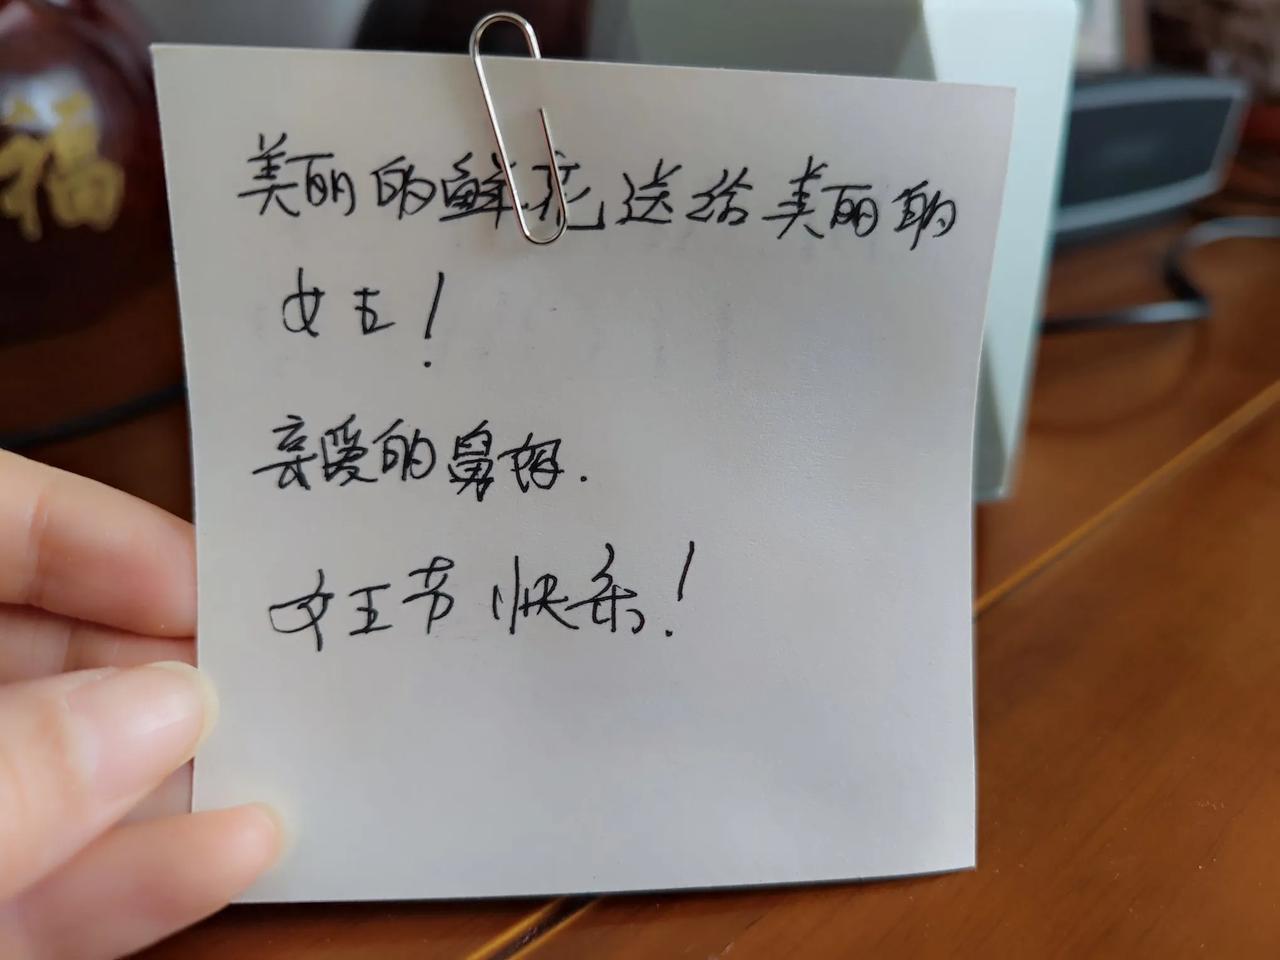 福
美丽的鲜花送给美丽的
女王！
亲爱的舅妈.
女王节快乐！